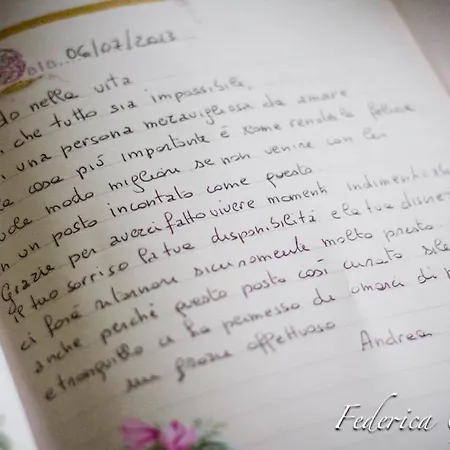 06/07/2013
do nella vita
che tutto sia impossibile,
una persona meravigliosa da amare
cosa più importante è come renderla felice
modo migliore se non venire con lei
un posto incantato come questo.
Grazie per averci fatto vivere momenti indimenticab
il tuo sorriso la tua disponibilità e la tua discrez
ci farà ritornare sicuramente molto presto
anche perché questo posto così curato sile
e tranquillo ci ha permesso di amarci di p
un grazie affettuoso
Andrea
Federica